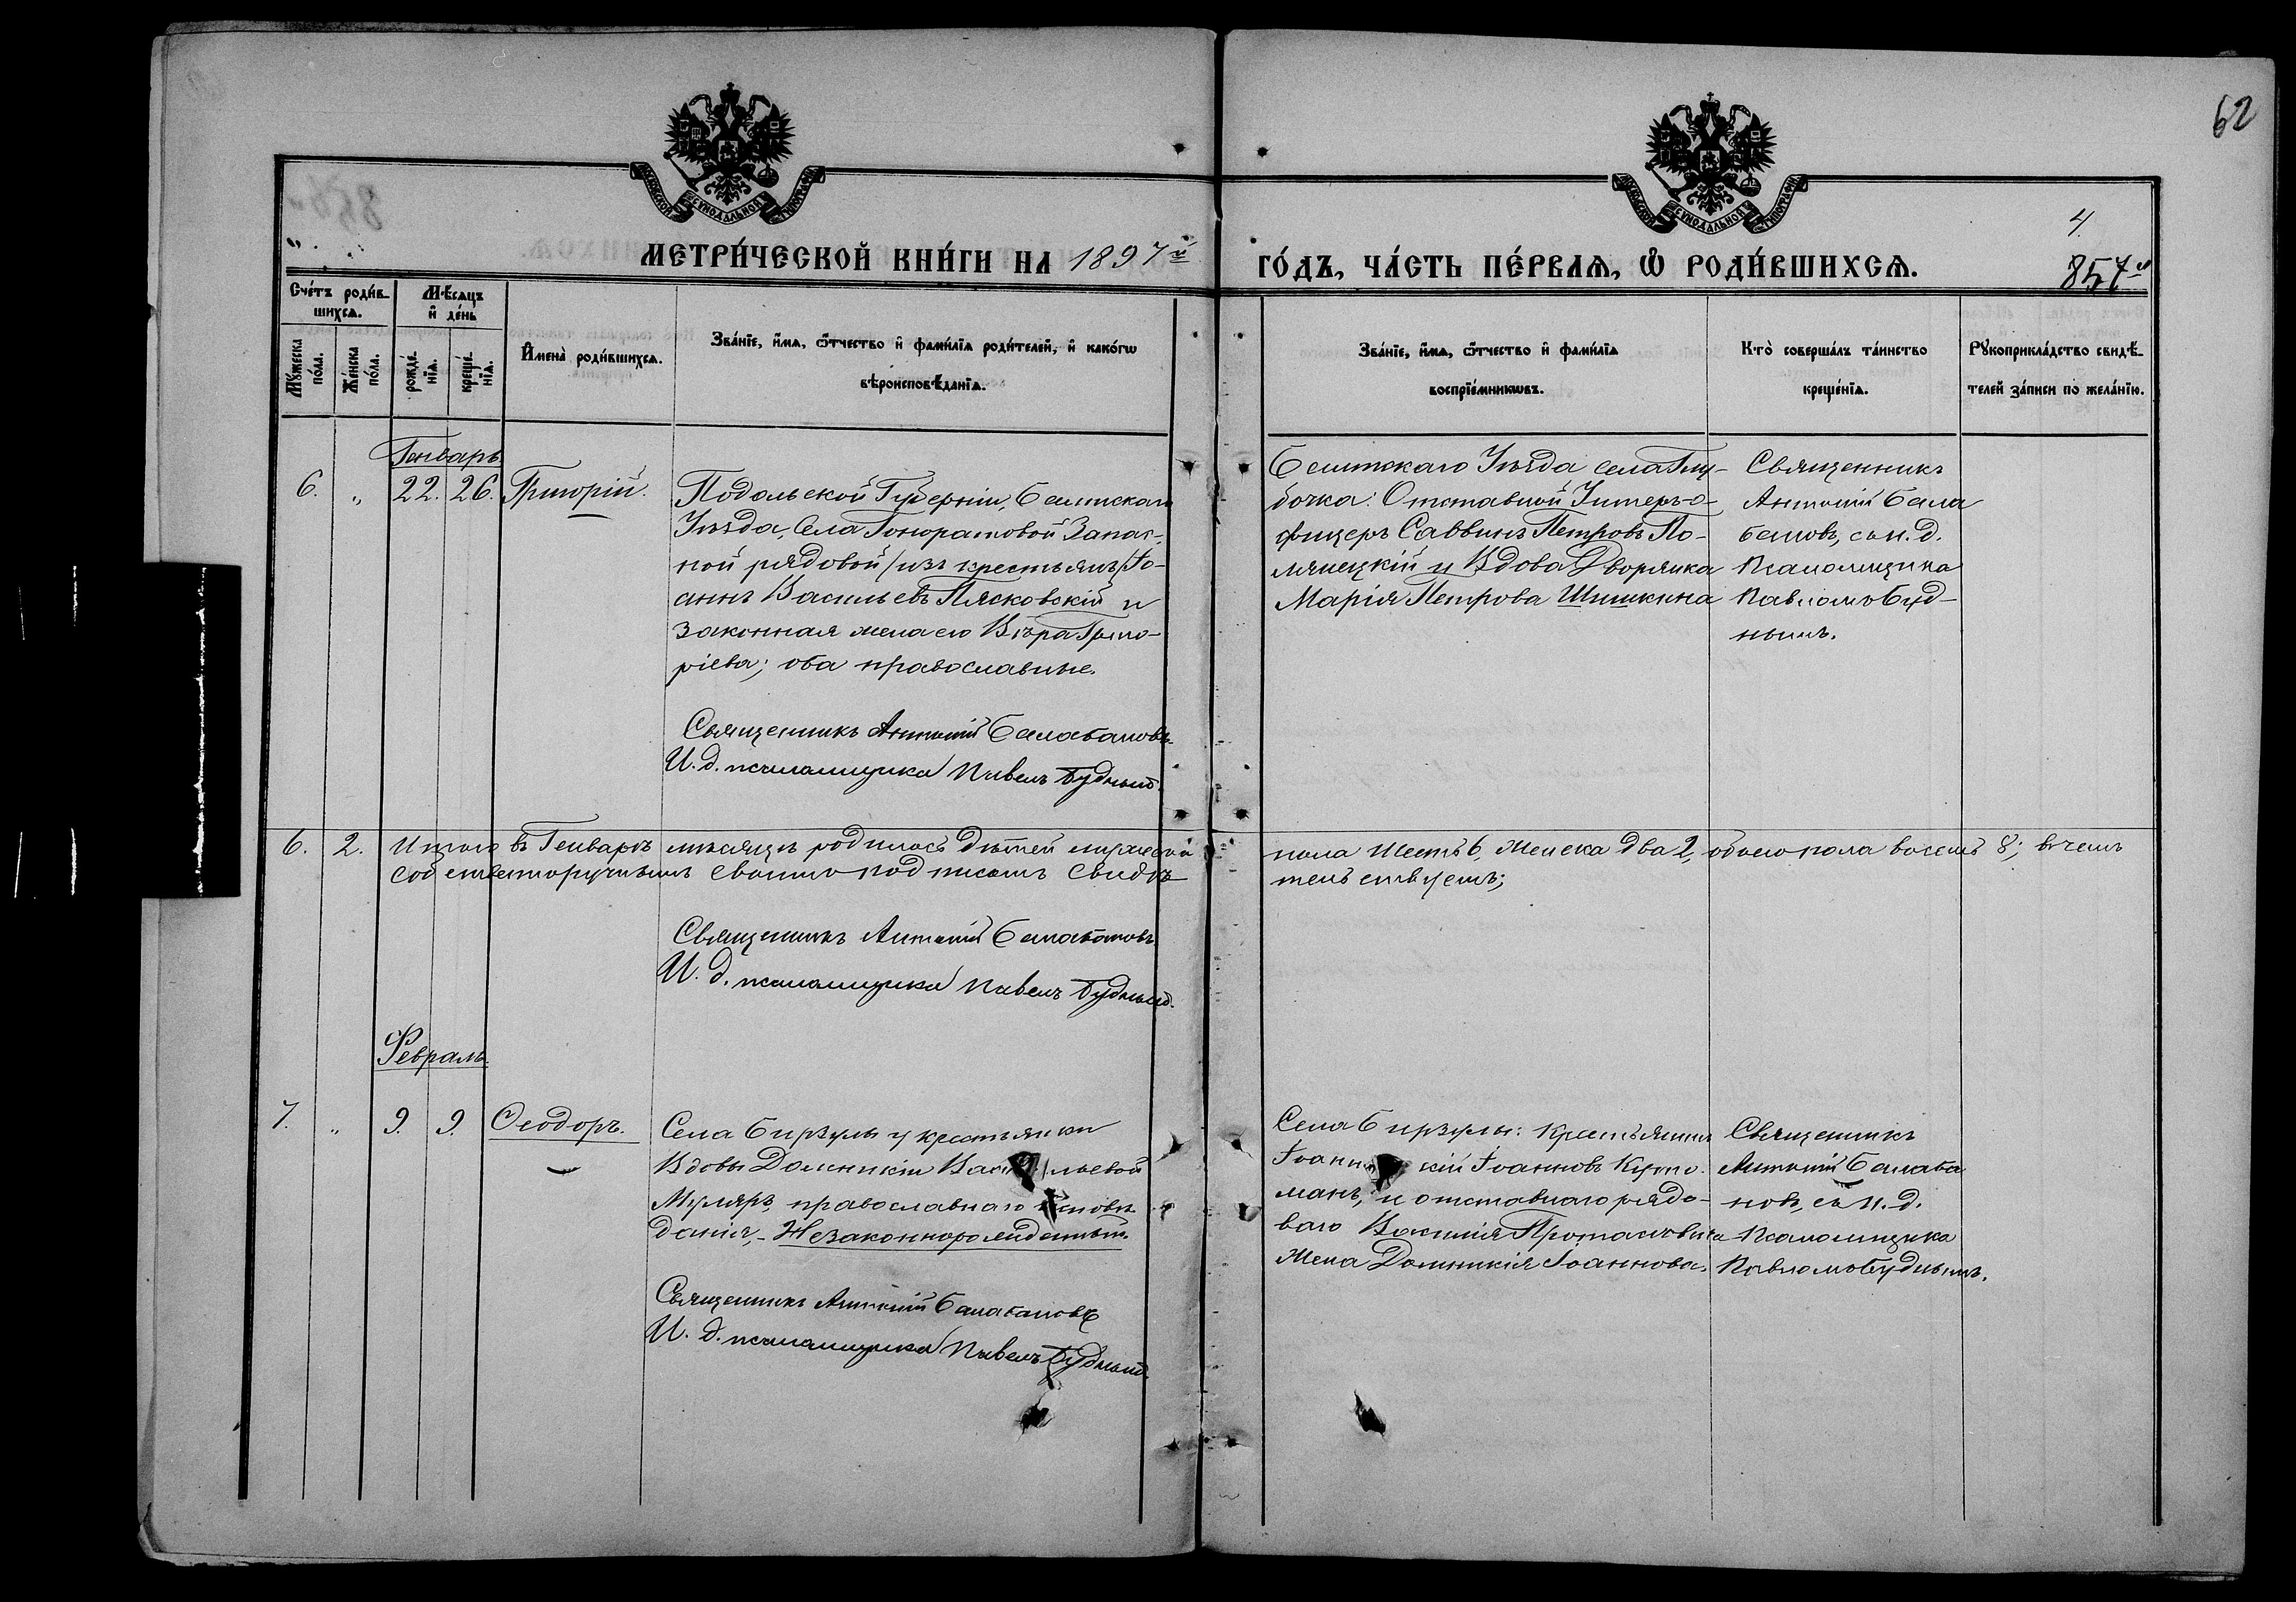 62
МОСКОВСКОЙ СѴНОДАЛЬНОЙ ТИПОГРАФІИ
МОСКОВСКОЙ СѴНОДАЛЬНОЙ ТИПОГРАФІИ
4.
МЕТРИ́ЧЕСКОЙ КНИ́ГИ НА 1897й ГО́ДЪ, ЧА́СТЬ ПЕ́РВАЯ, Ѡ РОДИ́ВШИХСЯ.
857
Сче́тъ роди́в-
шихся.
Мѣ́сяцъ
и де́нь
Мꙋ́жеска
по́ла.
Же́нска
по́ла.
рожде́-
нїя.
креще́-
нїя.
Имена̀ роди́вшихся.
Зва́нїе, и́мя, ѻ́тчество и фами́лїя роди́телей, и како́гѡ
вѣроисповѣ́данїя.
Зва́нїе, и́мя, ѻ́тчество и фами́лїя
воспрїе́мникѡвъ.
Кто̀ соверша́лъ та́инство
креще́нїя.
Рꙋкоприкла́дство свидѣ́-
телей за́писи по жела́нїю.
Генварь
6. „ 22. 26. Григорій.
Подольской Губерніи, Балтскаго
Уѣзда, Села Гоноратовой Запас-
ной рядовой /изъ крестьянъ/ Іо-
аннъ Васильевъ Плясковскій и
Законная жена его Вѣра Григо-
ріева; оба православные.
Священникъ Антоній Балабановъ
И. д. псаломщика Павелъ Будный.
Балтскаго Уѣзда села Глу-
бочка: Отставной Унтеръ-о-
фицеръ Саввинъ Петровъ По-
лянецкій и Вдова Дворянка
Марія Петрова Шишкина
Священникъ
Антоній Бала
бановъ, съ и. д.
Псаломщика
Павломъ Буд-
нымъ.
6. 2. Итого въ Генварѣ мѣсяцѣ родилось дѣтей мужеска пола шесть 6, женска два 2, обоего пола восемь 8; въ чемъ
собственноручнымъ своимъ подписомъ свидѣтельствуемъ;
Священникъ Антоній Балабановъ
И. д. псаломщика Павелъ Будный.
Февраль.
7. „ 9. 9. Ѳеодоръ.
Села Бирзулы у крестьянки
Вдовы Домникіи Васильевой
Муляръ, православнаго исповѣ-
данія, - Незаконнорожденный.
Священникъ Антоній Балабановъ
И. д. псаломщика Павелъ Будный.
Села Бирзулы: Крестьянинъ
кій Іоанновъ
манъ; и отставнаго рядо-
ваго Василія
Жена Домникія Іоаннова.
Священникъ
Антоній Балаба
новъ, съ и. д.
Псаломщика
Павломъ Буднымъ.